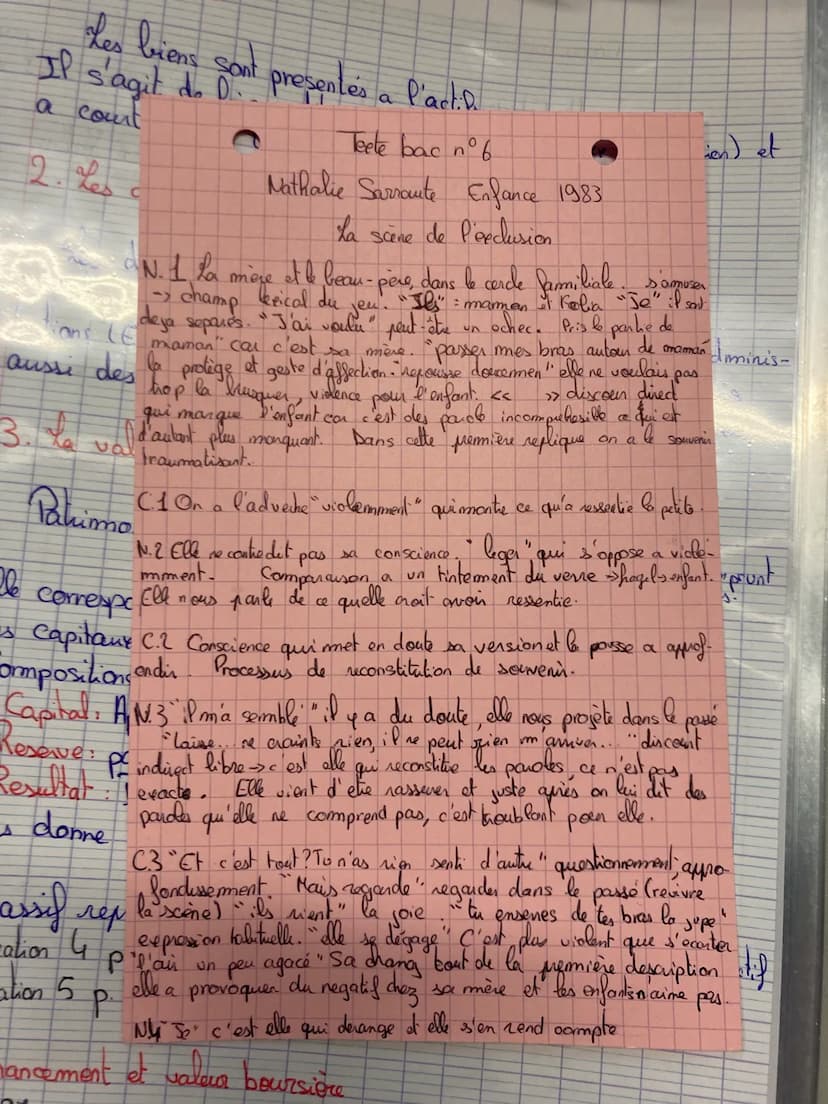 Les biens sont presentés a l'actif.
Il s'agit de
a court
ien) et
2. Les
Texte bac n°6
Nathalie Sarraute Enfance 1983
La scène de l'exclusion
N.1 La mère et le beau-père, dans le cercle familiale. s'amuser
-> champ lexical du jeu. "Ils" = maman et Kolia "Je" il sont
deja separés. "J'ai voulu" peut-être un echec. Pris le partie de
maman" car c'est sa mère. "passer mes bras autour de maman
la protège et geste d'affection. "repousse doucemen" elle ne voulais pas
trop la brusquer, violence pour l'enfant. << >> discour direct
qui marque l'enfant car c'est des parole incompréhosible ce qui est
d'autant plus marquant. Dans cette première replique on a le souvenir
traumatisant.
dminis-
aussi des
3. La val
C.1 On a l'adverbe "violemment" qui montre ce qu'a ressentie la petite.
Patrimo
N.2 Elle ne contredit pas sa conscience. "leger" qui s'oppose a viole-
mment. Comparaison a un tintement du verre -> fragel -> enfant.
Elle nous parle de ce quelle croit avoir ressentie.
prunt
s.
le correspo
s capitaux
C.2 Conscience qui met en doute sa version et la pousse a approf-
ondir. Processus de reconstitution de souvenir.
ompositions
Capital : A
N.3 "il m'a semblé" il y a du doute, elle nous projète dans le passé
"Laisse... ne craints rien, il ne peut rien m'arriver.. "discourt
indirect libre -> c'est elle qui reconstitue les paroles, ce n'est pas
exacte. Elle vient d'etre rassurer et juste après on lui dit des
paroles qu'elle ne comprend pas, c'est troublant pour elle.
Reserve :
Resultat :
s donne
C.3 "Et c'est tout? Tu n'as rien senti d'autre" questionnement, appro-
fondissement. "Mais regarde" regarder dans le passé (revivre
la scène) "ils rient" la joie. "tu enseres de tes bras la jupe"
expression habituelle. "elle se dégage" C'est plus violent que s'ecarter
"l'ai un peu agacé" Sa chang tout de la première description
elle a provoquer du negatif chez sa mère et les enfants n'aime pas.
assif rep
ation 4 p
tif
ation 5 p.
N4 "Je" c'est elle qui derange et elle s'en rend compte
ancement et valeur boursière